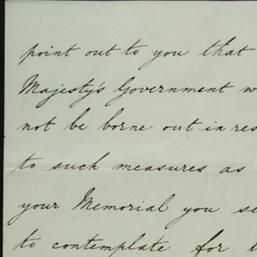 point out to you that
Majesty's Government w
not be borne out in res
to such measures as
your Memorial you se
to contemplate for t